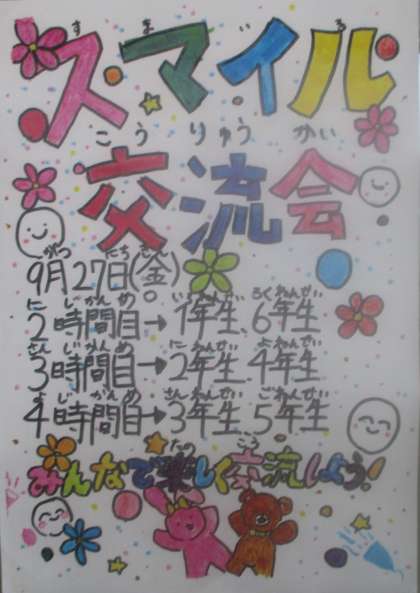 すまいる
スマイル
こうりゅうかい
交流会
がつ にち きん
9月27日(金)。
に じかんめ いちねんせい ろくねんせい
2時間目→1年生、6年生
さん じかんめ に ねんせい よ ねんせい
3時間目→2年生、4年生
よ じかんめ さんねんせい ごねんせい
4時間目→3年生、5年生
たの こう
みんなで楽しく交流しよう!